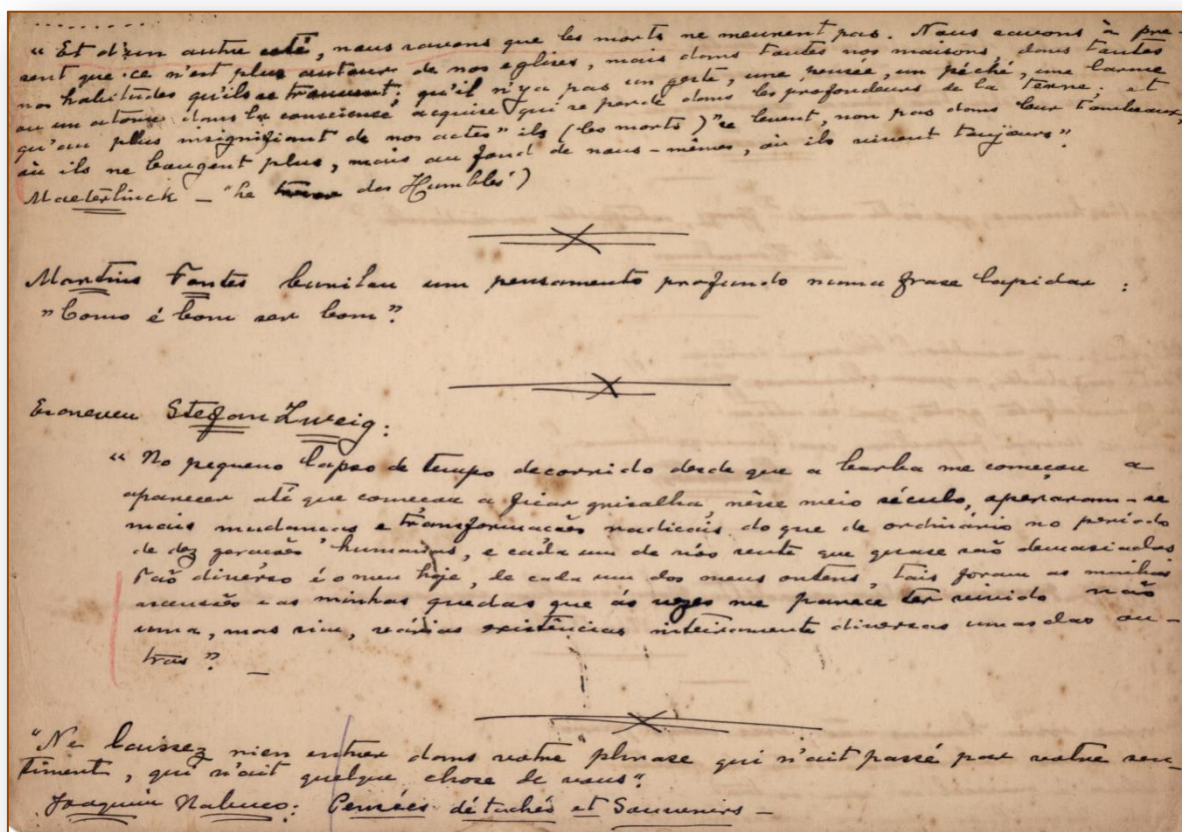 ..........
"Et d'un autre coté, nous savons que les morts ne meurent pas. Nous savons à pre-
sent que ce n'est plus autour de nos eglises, mais dans toutes nos maisons, dans toutes
nos habitudes qu'ils se trouvent; qu'il n'y a pas un geste, une pensée, un péché, une larme
ou un atome dans la conscience acquise qui se perde dans les profondeurs de la terre; et
qu'au plus insignifiant de nos actes" ils (les morts) "se levent, non pas dans leur tombeaux,
où ils ne bougent plus, mais au fond de nous-mêmes, où ils vivent toujours".
Maeterlinck – "Le des Humbles")
Martins Fontes burilou um pensamento profundo numa frase lapidar :
"Como é bom ser bom".
Escreveu Stefan Zweig:
"No pequeno lapso de tempo decorrido desde que a barba me começou a
aparecer até que começou a ficar grisalha, nêsse meio século, operaram-se
mais mudanças e transformações radicais do que de ordinário no período
de dez gerações humanas, e cada um de nós sente que quase são demasiadas
Tão diverso é o meu hoje, de cada um dos meus ontens, tais foram as minhas
ascensões e as minhas quedas que ás vezes me parece ter vivido não
uma, mas sim, várias existências inteiramente diversas umas das ou-
tras". –
"Ne laissez rien entrer dans votre phrase qui n'ait passé par votre sen-
timent, qui n'ait quelque chose de vous".
Joaquim Nabuco: Pensées détachés et Souvenirs –